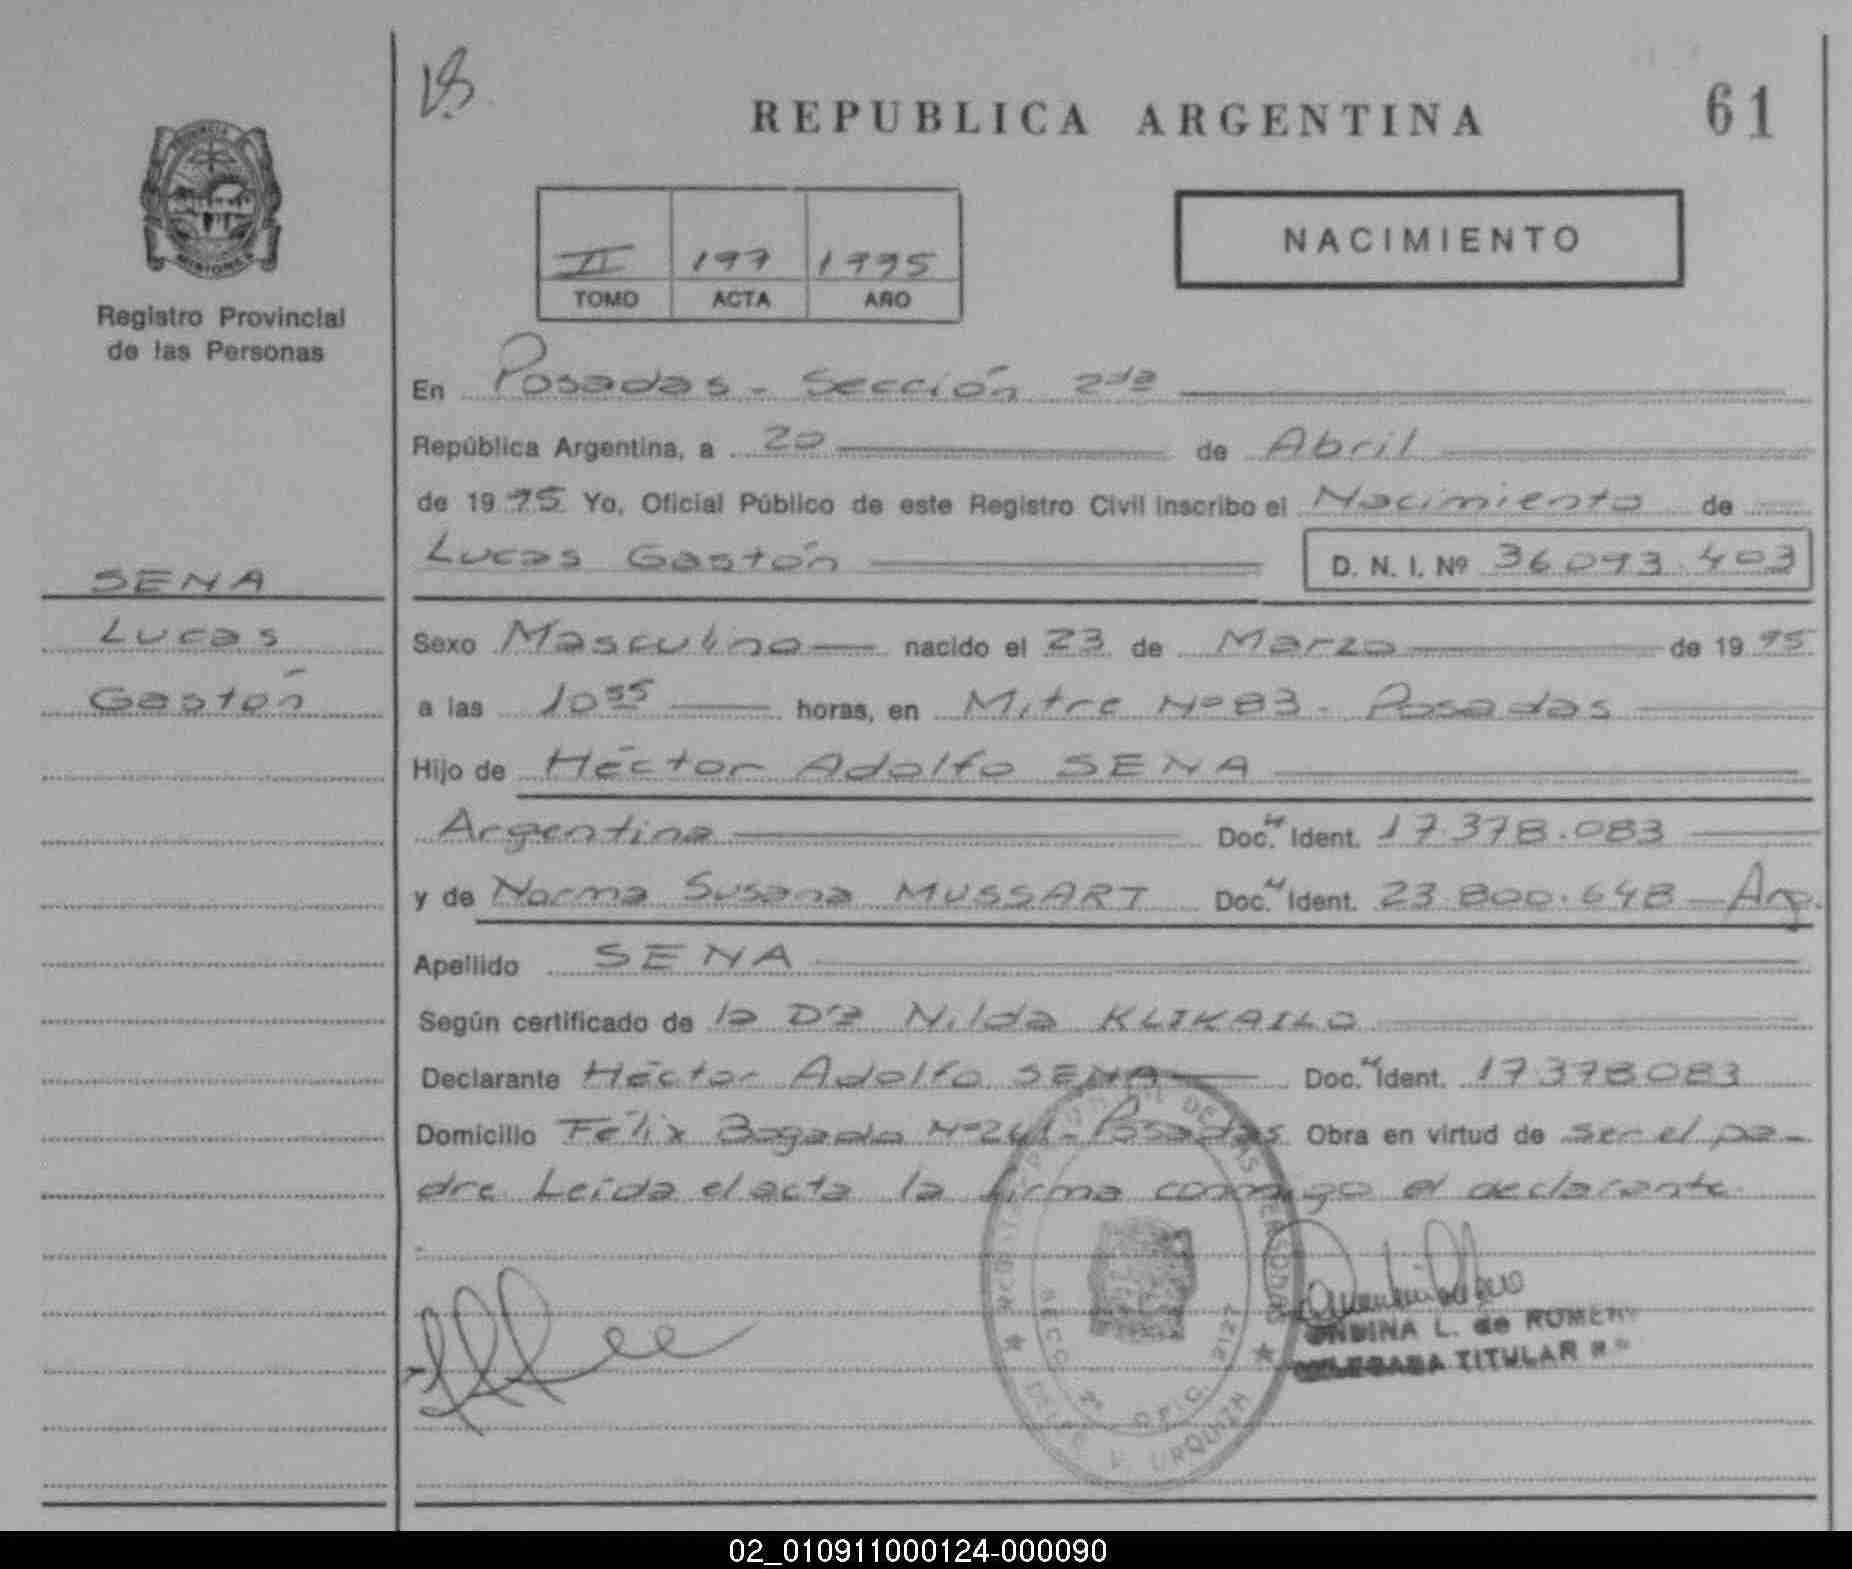 REPUBLICA ARGENTINA
61
Registro Provincial
de las Personas
II 197 1995
TOMO ACTA AÑO
NACIMIENTO
En Posadas - Sección 2da
República Argentina, a 20 de Abril
de 1995 Yo, Oficial Público de este Registro Civil inscribo el Nacimiento de
Lucas Gastón D. N. I. Nº 36.093.403
SENA
Lucas
Gastón
Sexo Masculino nacido el 23 de Marzo de 1995
a las 10 55 horas, en Mitre Nº 83 - Posadas
Hijo de Héctor Adolfo SENA
Argentina Doc. Ident. 17.378.083
y de Norma Susana MUSSART Doc. Ident. 23.800.648 - Arg.
Apellido SENA
Según certificado de la Dra Nilda KLIKAILO
Declarante Héctor Adolfo SENA Doc. Ident. 17378083
Domicilio Félix Bogado Nº 241 - Posadas Obra en virtud de ser el pa-
dre Leída el acta la firma conmigo el declarante.
ONDINA L. de ROMERO
DELEGADA TITULAR
DE LAS PERSONAS
SECC.
OFIC. 2127
URQUIZA
02_010911000124-000090